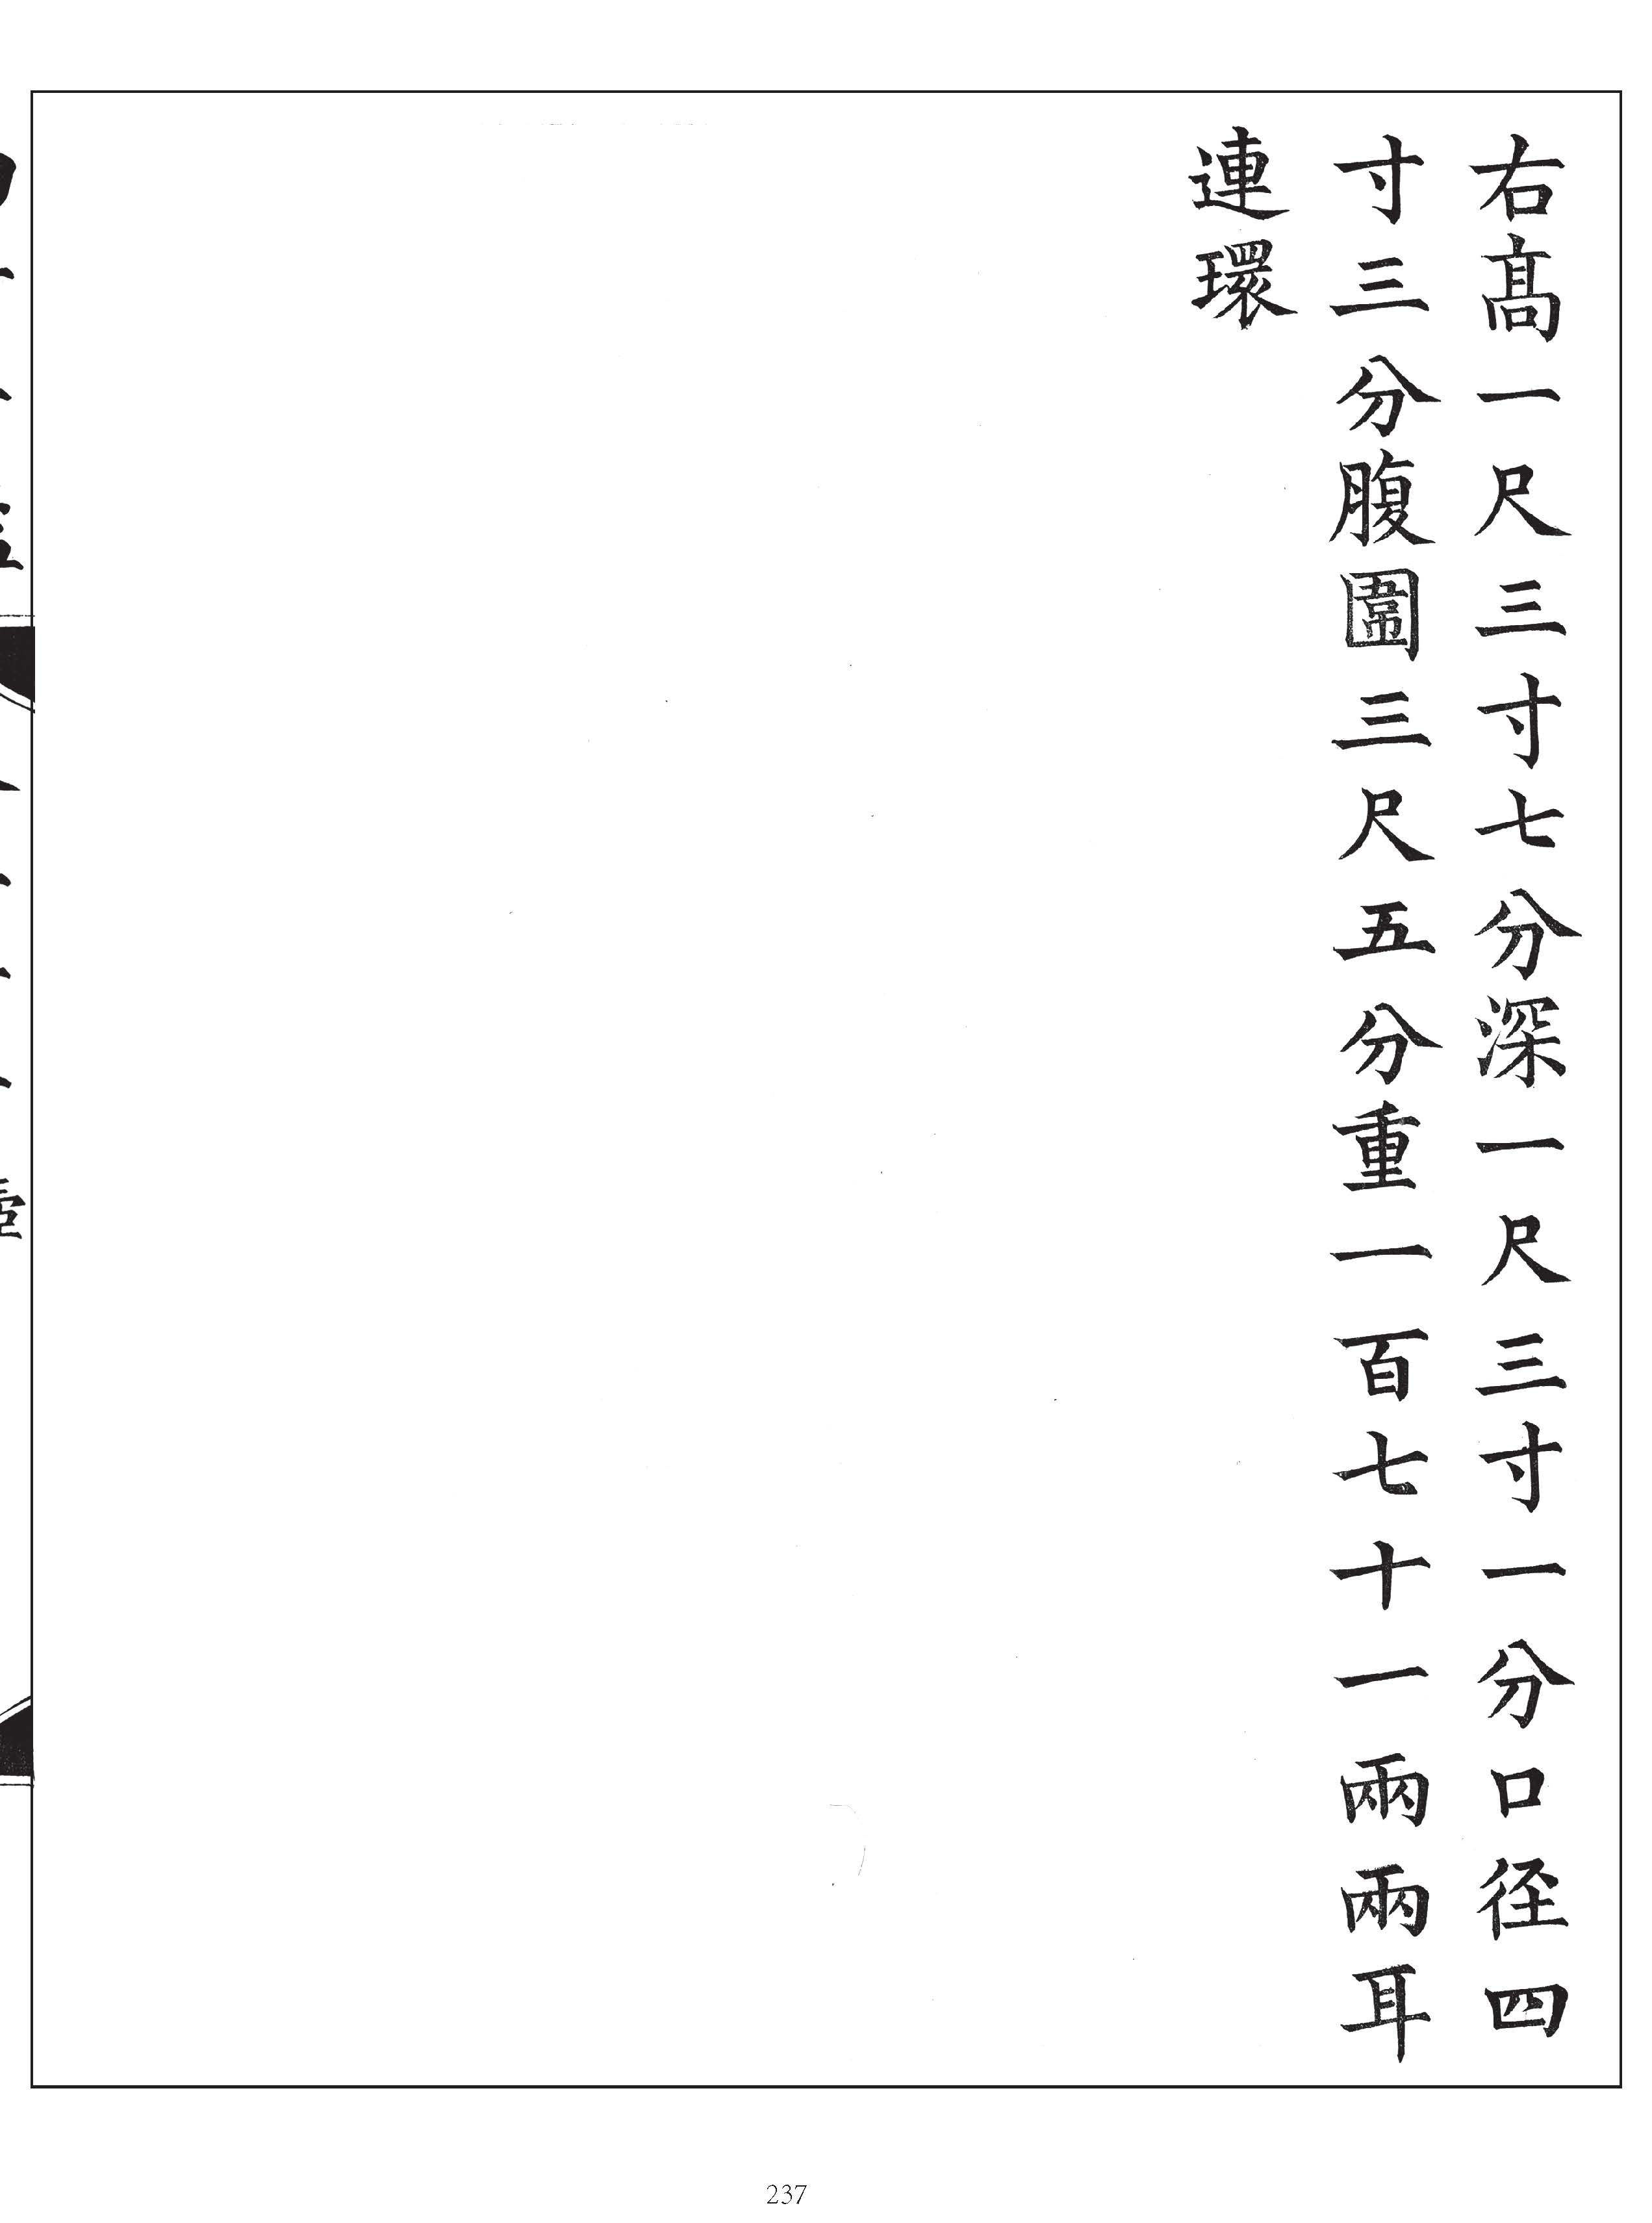 右髙一尺三寸七分深一尺三寸一分口径四
寸三分腹圍三尺五分重一百七十一兩兩耳
連環
237